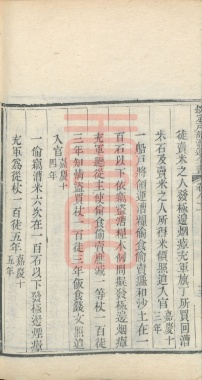 徒賣米之人發極邊烟瘴充軍旗丁所買回漕
米石及賣米之人所得米價銀追入官嘉慶十
三年
一船戶將領運漕糧偷食偷賣濕和沙土在一
百石以下依竊盜漕糧本例問擬發極邊烟瘴
充軍聽從主使偷食偷賣應減一等杖一百徒
三年知情盜買杖一百徒三年飯食錢文照追
入官嘉慶十
四年
一偷竊漕米六次在一百石以下發極邊烟瘴
充軍為從杖一百徒五年嘉慶十
五年